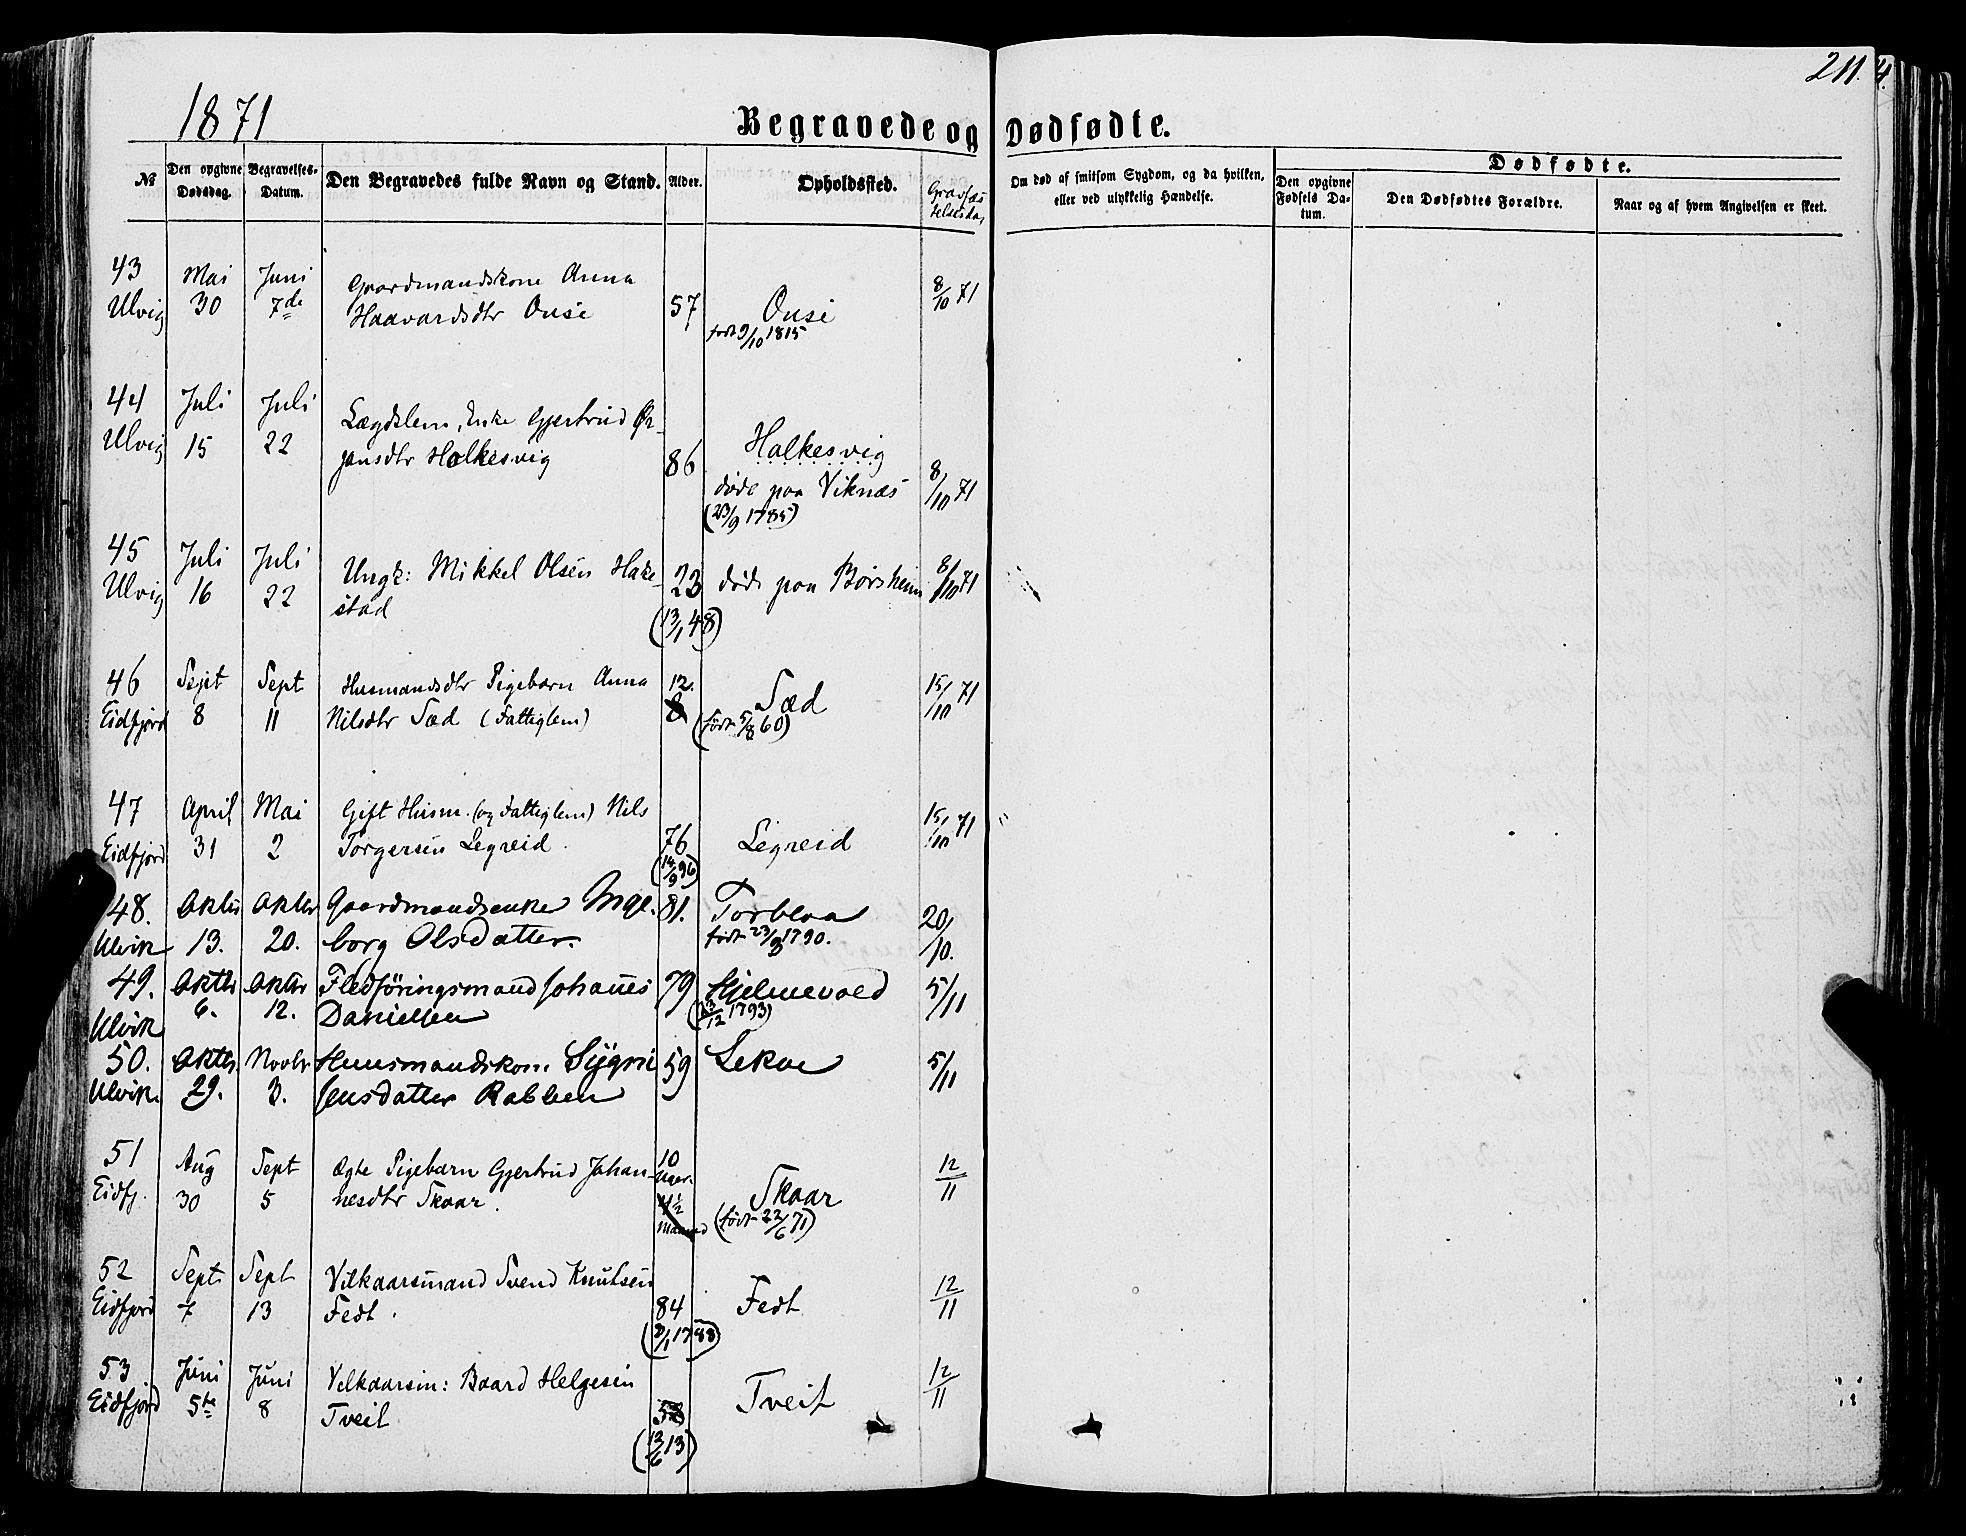 211.
1871
Begravede og Dødfødte.
№
Den opgivne Dødsdag.
Begravelses-Datum.
Den Begravedes fulde Navn og Stand.
Alder.
Opholdssted.
Om død af smitsom Sygdom, og da hvilken, eller ved ulykkelig Hændelse.
Dødfødte.
Den opgivne Fødsels Datum.
Den Dødfødtes Forældre.
Naar og af hvem Angivelsen er skeet.
43 Mai Juni Gaardmandskone Anna 8/10 71
Ulvig 30 7de Haavardsdtr Onsi 57 Onsi
født 9/10 1815
44 Juli Juli Lægdslem, Enke Gjertrud Ør-
Ulvig 15 22 jansdtr Holkesvig 86 Holkesvig 8/10 71
døde paa Viknæs
(23/9 1785)
45 Juli Juli Ungk: Mikkel Olsen Hake- 23 døde paa Børsheim 8/10 71
Ulvig 16 22 stad
(13/1 48)
46 Sept Sept Husmandsdtr Pigebarn Anna 12. Sæd 15/10 71
Eidfjord 8 11 Nilsdtr Sæd (Fattiglem) 8 (født 5/8 60)
47 April Mai Gift Husm. (og Fattiglem) Nils 15/10 71
Eidfjord 31 2 Torgersen Legreid. 76 Legreid
(14/9 96)
48. Oktbr Oktbr Gaardmandsenke Inge- 81. Torbloa 20/10.
Ulvik 13. 20. borg Olsdatter. født 23/8 1790.
49. Oktbr Oktbr Fledføringsmand Johanes 79 Hjelmevold 5/11
Ulvik 6. 12. Danielsen (13/12 1793)
50. Oktbr. Novbr Huusmandskone Sygni 59 Lekve 5/11
Ulvik. 29. 3. Jensdatter Rabben
51 Aug Sept Ægte Pigebarn Gjertrud Johan- 10 Uger. 12/11
Eidfj. 30 5 nesdtr Skaar. 4½ Maaned Skaar
(født 22/6 71)
52 Sept. Sept Vilkaarsmand Svend Knutsen 12/11
Eidfjord 7 13 Fedt. 84 Fedt
53 Juni Juni Vilkaarsm: Baard Helgesen 12/11
Eidfjord 5te 8 Tveit 58 Tveit
(12/6 13)